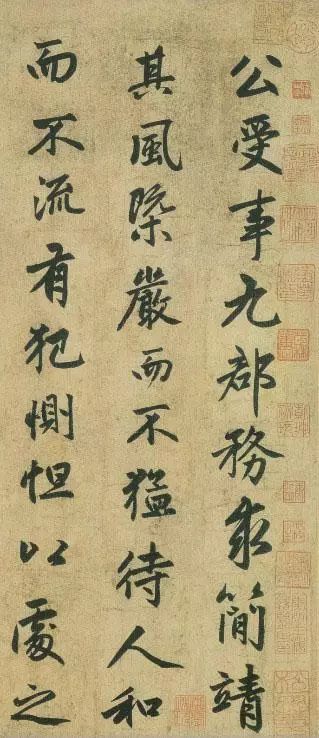 公受事九郡務求簡靖
其風檗嚴而不猛待人和
而不流有犯惻怛以處之